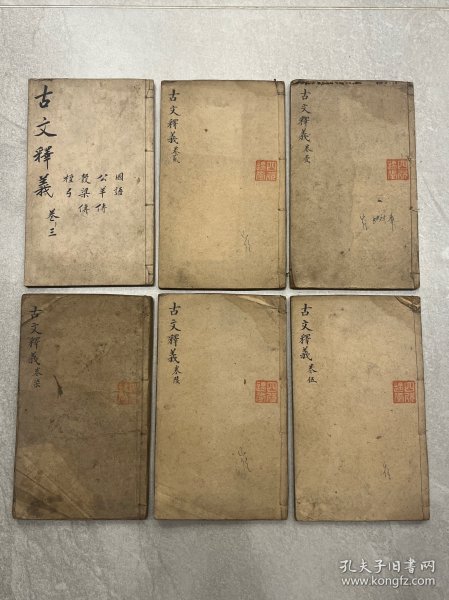 古文释義 卷三
国語
公羊傳
穀梁傳
檀弓
古文釋義 卷貳
古文釋義 卷壹
古文釋義 卷柒
古文釋義 卷陸
古文釋義 卷伍
孔夫子旧书网
www.kongfz.com